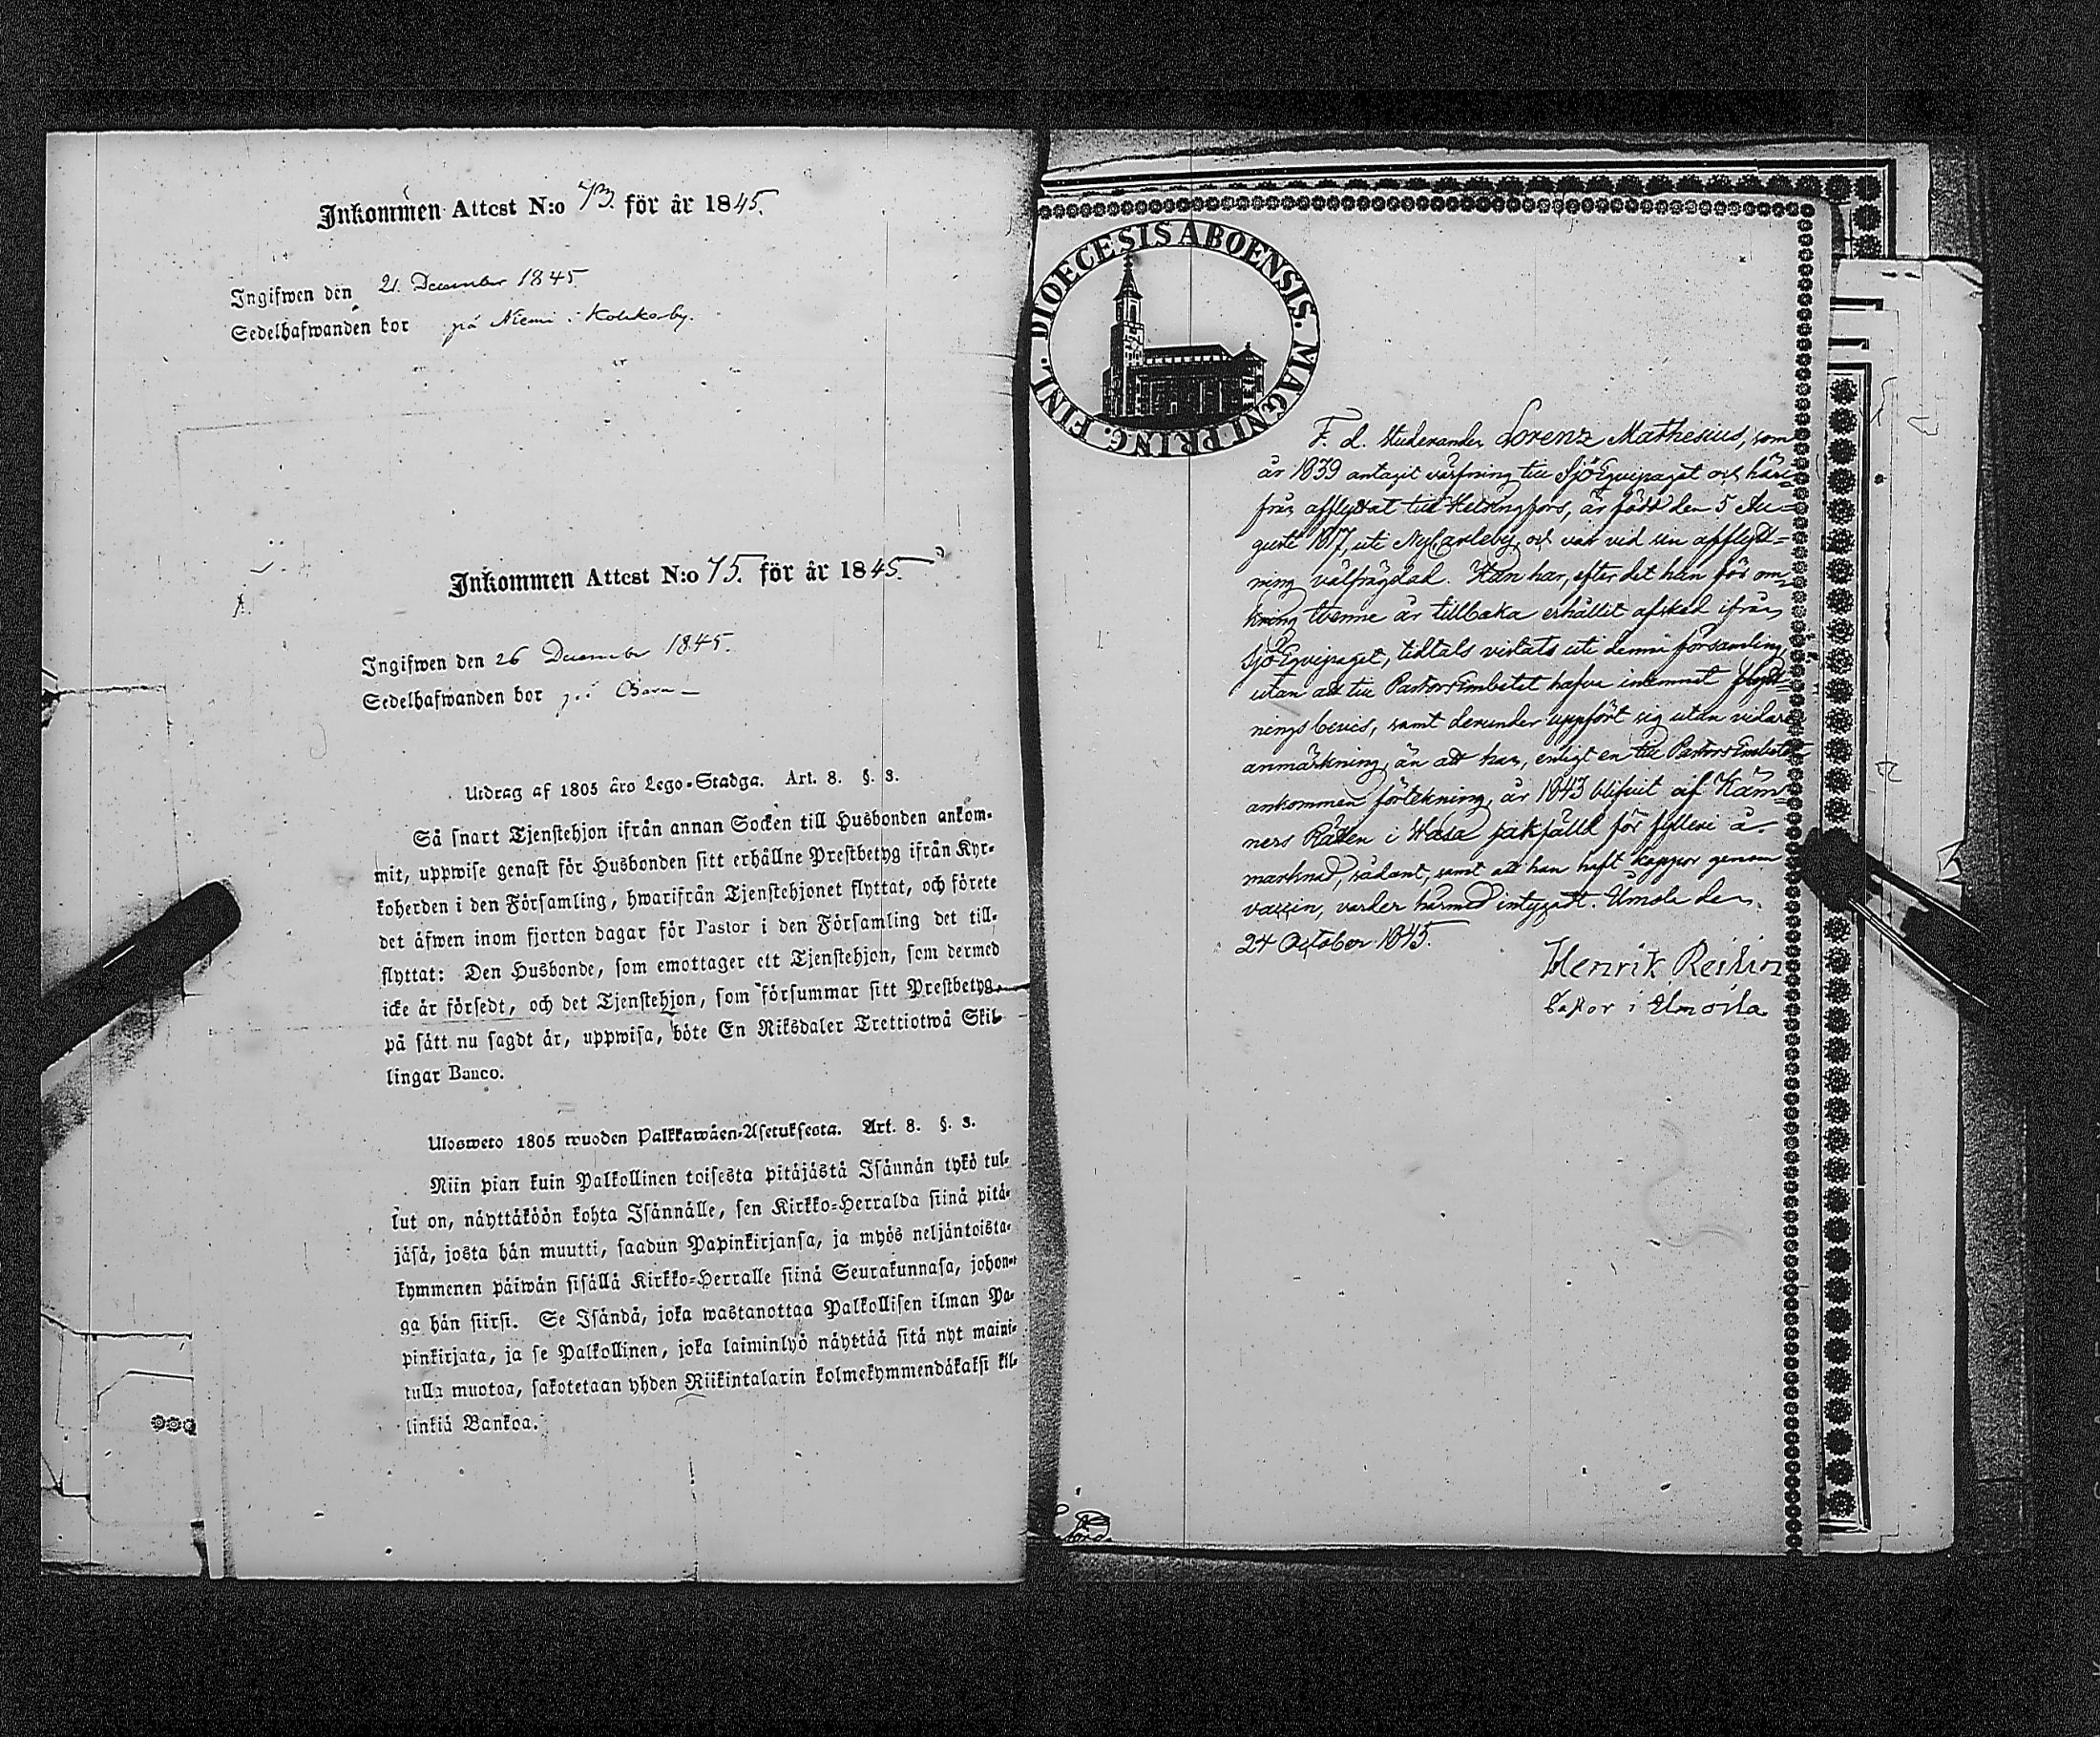 Inkommen Attest N:o 73. för år 1845.
Ingifwen den 21. December 1845.
Sedelhafwanden bor på Niemi i Kolkkaby.
Inkommen Attest N:o 75. för år 1845.
Ingifwen den 26 December 1845.
Sedelhafwanden bor på
Utdrag af 1805 års Lego-Stadga. Art. 8. §. 3.
Så snart Tjenstehjon ifrån annan Socken till Husbonden ankom-
mit, uppwise genast för Husbonden sitt erhållne Prestbetyg ifrån Kyr-
koherden i den Församling, hwarifrån Tjenstehjonet flyttat, och förete
det äfwen inom fjorton dagar för Pastor i den Församling det till-
flyttat: Den Husbonde, som emottager ett Tjenstehjon, som dermed
icke är försedt, och det Tjenstehjon, som försummar sitt Prestbetyg
på sätt nu sagdt är, uppwisa, böte En Riksdaler Trettiotwå Skil-
lingar Banco.
Ulosweto 1805 wuoden Palkkawäen-Asetuksesta. Art. 8. §. 3.
Niin pian kuin Palkollinen toisesta pitäjästä Isännän tykö tul-
lut on, näyttäköön kohta Isännälle, sen Kirkko-Herralda siinä pitä-
jäsä, josta hän muutti, saadun Papinkirjansa, ja myös neljäntoista-
kymmenen päiwän sisällä Kirkko-Herralle siinä Seurakunnasa, johon-
ga hän siirsi. Se Isändä, joka wastanottaa Palkollisen ilman Pa-
pinkirjata, ja se Palkollinen, joka laiminlyö näyttää sitä nyt maini-
tulla muotoa, sakotetaan yhden Riikintalarin kolmekymmendäkaksi kil-
linkiä Bankoa.
DIOECESIS ABOENSIS. MAGNI PRINC. FINL.
F. d. Studeranden Lorenz Mathesius, som
år 1839 antagit värfning till Sjö Equipaget och häri-
från afflyttat till Helsingfors, är född den 5 Au-
gusti 1817, uti NyCarleby, och var vid sin afflytt-
ning välfrägdad. Han har, efter det han för om-
kring tvenne år tillbaka erhållit afsked ifrån
SjöEquipaget, tidtals vistats uti denna församling,
utan att till PastorsEmbetet hafva inlemnat flytt-
ningsbevis, samt derunder uppfört sig utan vidare
anmärkning, än att han, enligt en till PastorsEmbetet
ankommen förtekning, år 1843 blifvit af Käm-
ners Rätten i Wasa sakfälld för fylleri å
marknad; sådant, samt att han haft koppor genom
vaccin, varder härmed intygadt. Umola den
24 October 1845.
Henrik
Pastor i